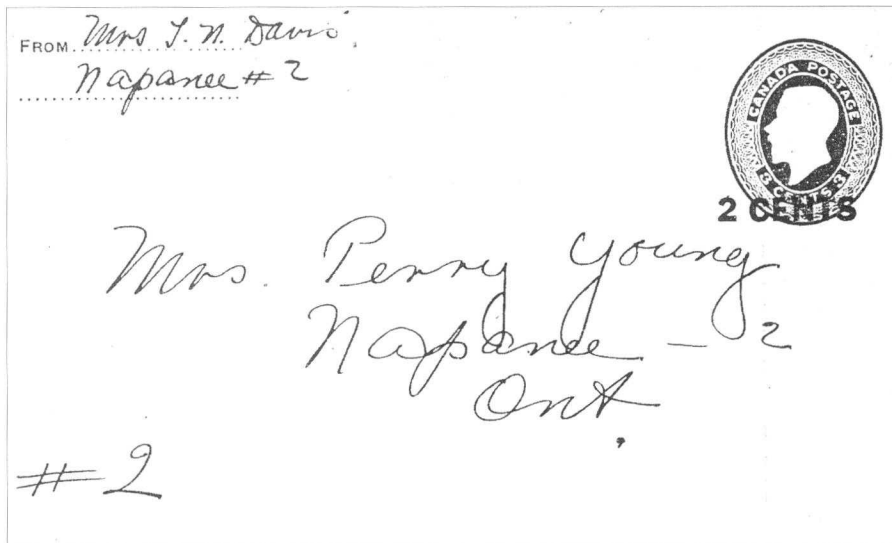 FROM Mrs T. N. Davis,
Napanee # 2
CANADA POSTAGE
3 CENTS 3
2 CENTS
Mrs. Perry Young
Napanee - 2
Ont.
# 2